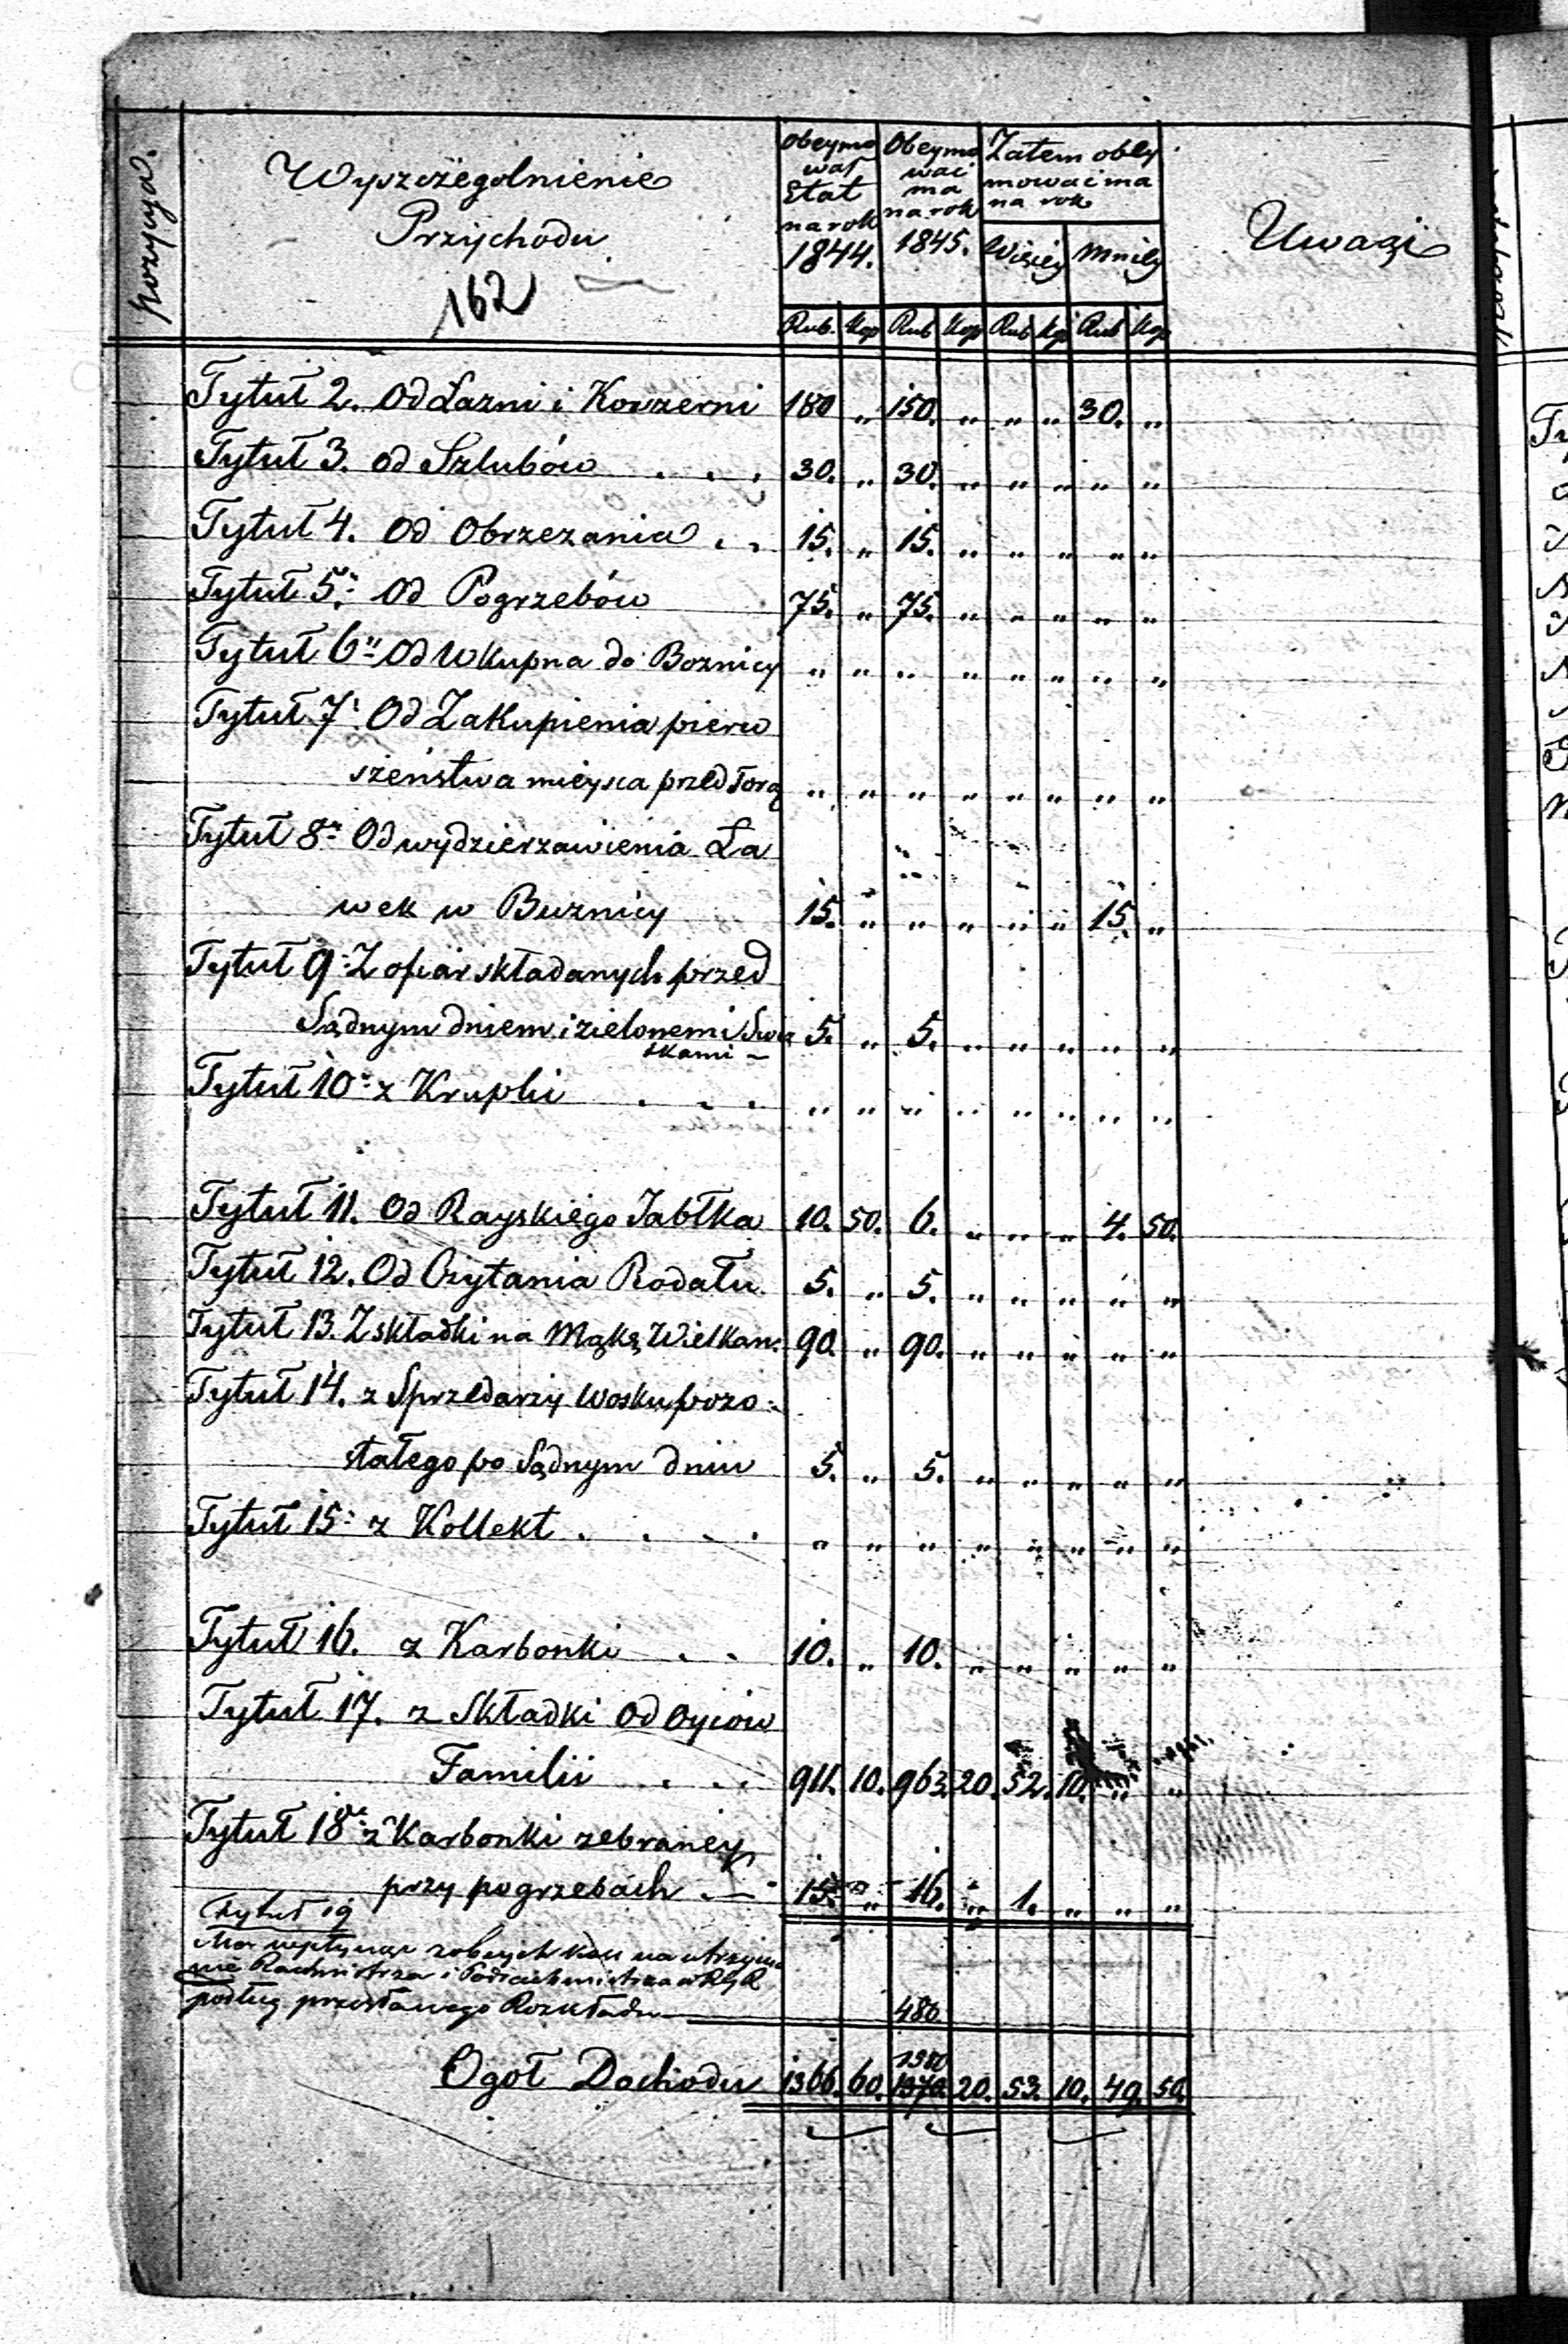 pozycya.
Wyszczegolnienie
Przychodu
162
Obeymo
wał
Etat
na rok
1844.
Obeymo
wać
ma
na rok
1845.
Zatem obey
mować ma
na rok
Więcey
Mniey
Uwagi
Rub. Kop Rub Kop Rub Kp Rub Kop
Tytuł 2. Od Łazni i Koszerni 180 „ 150. „ „ „ 30. „
Tytuł 3. od Szlubów . . . 30. „ 30. „ „ „ „ „
Tytuł 4. Od Obrzezania . . 15. „ 15. „ „ „ „ „
Tytuł 5. Od Pogrzebów 75. „ 75. „ „ „ „ „
Tytuł 6 Od Wkupna do Boznicy „ „ „ „ „ „ „ „
Tytuł 7. Od Zakupienia pierw
szeństwa mieysca przed Torą „ „ „ „ „ „ „ „
Tytuł 8 Od wydzierzawienia Ła
wek w Buznicy 15. „ „ „ „ „ 15. „
Tytuł 9 Z ofiar składanych przed
Sądnym dniem i zielonemi Swią 5. „ 5. „ „ „ „ „
tkami –
Tytuł 10 z Krupki . . . „ „ „ „ „ „ „ „
Tytuł 11. Od Rayskiego Jabłka 10. 50. 6. „ „ „ 4. 50.
Tytuł 12. Od Czytania Rodału. 5. „ 5. „ „ „ „ „
Tytuł 13. Z składki na Mąkę Wielkan: 90. „ 90. „ „ „ „ „
Tytuł 14. z Sprzedarzy Wosku pozo-
stałego po Sądnym dniu 5. „ 5. „ „ „ „ „
Tytuł 15 z Kollekt . . . . „ „ „ „ „ „ „ „
Tytuł 16. z Karbonki . . 10. „ 10. „ „ „ „ „
Tytuł 17. z Składki Od Oyców
Familii . . . 911. 10. 963. 20. 52. 10. „ „
Tytuł 18 z Karbonki zebraney
przy pogrzebach . — 15. „ 16. „ 1. „ „ „
Tytuł 19
na utrzyma
nie Rachmistrza i Podrachmistrza w
podług Rozkładu 480.
1980
Ogoł Dochodu 1366. 60. 1370 20. 53. 10. 49. 50.